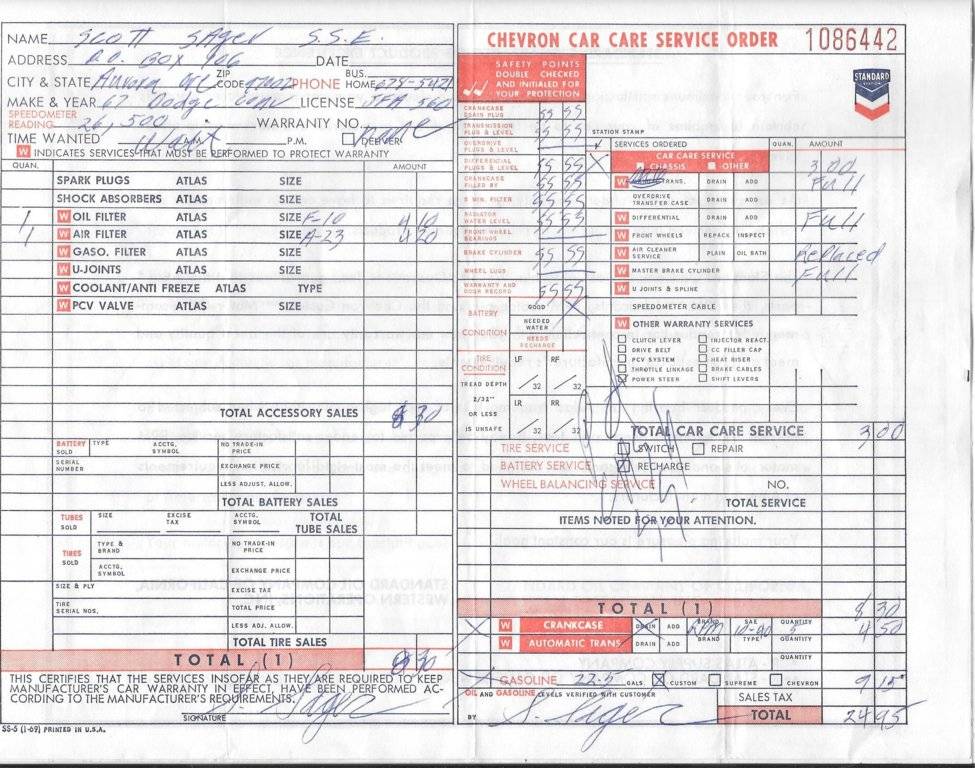 NAME Scott Sager S.S.E.
ADDRESS P.O. Box 906 DATE
CITY & STATE Aurora ZIP CODE 97002 PHONE BUS. HOME 678-5421
MAKE & YEAR 67 Dodge Conv LICENSE JFA 560
SPEEDOMETER READING 26,500 WARRANTY NO.
TIME WANTED Wait P.M. DELIVER
W INDICATES SERVICES THAT MUST BE PERFORMED TO PROTECT WARRANTY
QUAN. AMOUNT
SPARK PLUGS ATLAS SIZE
SHOCK ABSORBERS ATLAS SIZE
1 W OIL FILTER ATLAS SIZE F-10 4 10
1 W AIR FILTER ATLAS SIZE A-23 4 20
W GASO. FILTER ATLAS SIZE
W U-JOINTS ATLAS SIZE
W COOLANT/ANTI FREEZE ATLAS TYPE
W PCV VALVE ATLAS SIZE
TOTAL ACCESSORY SALES 8 30
BATTERY SOLD TYPE ACCTG. SYMBOL NO TRADE-IN PRICE
SERIAL NUMBER EXCHANGE PRICE
LESS ADJUST. ALLOW.
TOTAL BATTERY SALES
TUBES SOLD SIZE EXCISE TAX ACCTG. SYMBOL TOTAL TUBE SALES
TIRES SOLD TYPE & BRAND NO TRADE-IN PRICE
ACCTG. SYMBOL EXCHANGE PRICE
SIZE & PLY EXCISE TAX
TIRE SERIAL NOS. TOTAL PRICE
LESS ADJ. ALLOW.
TOTAL TIRE SALES
TOTAL (1) 8 30
THIS CERTIFIES THAT THE SERVICES INSOFAR AS THEY ARE REQUIRED TO KEEP
MANUFACTURER'S CAR WARRANTY IN EFFECT, HAVE BEEN PERFORMED AC-
CORDING TO THE MANUFACTURER'S REQUIREMENTS.
SIGNATURE S. Sager
SS-5 (1-69) PRINTED IN U.S.A.
CHEVRON CAR CARE SERVICE ORDER 1086442
STANDARD
SAFETY POINTS
DOUBLE CHECKED
AND INITIALED FOR
YOUR PROTECTION
CRANKCASE DRAIN PLUG SS SS
TRANSMISSION PLUG & LEVEL SS SS
OVERDRIVE PLUGS & LEVEL
DIFFERENTIAL PLUGS & LEVEL SS SS
CRANKCASE FILLED BY SS SS
5 MIN. FILTER SS SS
RADIATOR WATER LEVEL SS SS
FRONT WHEEL BEARINGS
BRAKE CYLINDER SS SS
WHEEL LUGS
WARRANTY AND DOOR RECORD SS SS
BATTERY CONDITION GOOD X
NEEDED WATER
NEEDS RECHARGE
TIRE CONDITION LF RF
TREAD DEPTH /32 /32
2/32" LR RR
OR LESS
IS UNSAFE /32 /32
STATION STAMP
SERVICES ORDERED QUAN. AMOUNT
X CAR CARE SERVICE 3.00
CHASSIS OTHER
W TRANS. DRAIN ADD Full
OVERDRIVE TRANSFER CASE DRAIN ADD
W DIFFERENTIAL DRAIN ADD Full
W FRONT WHEELS REPACK INSPECT
W AIR CLEANER SERVICE PLAIN OIL BATH Replaced
W MASTER BRAKE CYLINDER Full
W U JOINTS & SPLINE
SPEEDOMETER CABLE
W OTHER WARRANTY SERVICES
CLUTCH LEVER INJECTOR REACT.
DRIVE BELT CC FILLER CAP
PCV SYSTEM HEAT RISER
THROTTLE LINKAGE BRAKE CABLES
POWER STEER SHIFT LEVERS
TOTAL CAR CARE SERVICE 3 00
TIRE SERVICE SWITCH REPAIR
BATTERY SERVICE RECHARGE
WHEEL BALANCING SERVICE NO.
TOTAL SERVICE
ITEMS NOTED FOR YOUR ATTENTION.
TOTAL (1) 8 30
X W CRANKCASE DRAIN ADD BRAND RPM SAE 10-40 QUANTITY 5 4 50
W AUTOMATIC TRANS. DRAIN ADD BRAND TYPE QUANTITY
QUANTITY
GASOLINE 22.5 GALS. X CUSTOM SUPREME CHEVRON 9 15
OIL AND GASOLINE LEVELS VERIFIED WITH CUSTOMER SALES TAX
BY S. Sager TOTAL 24 95